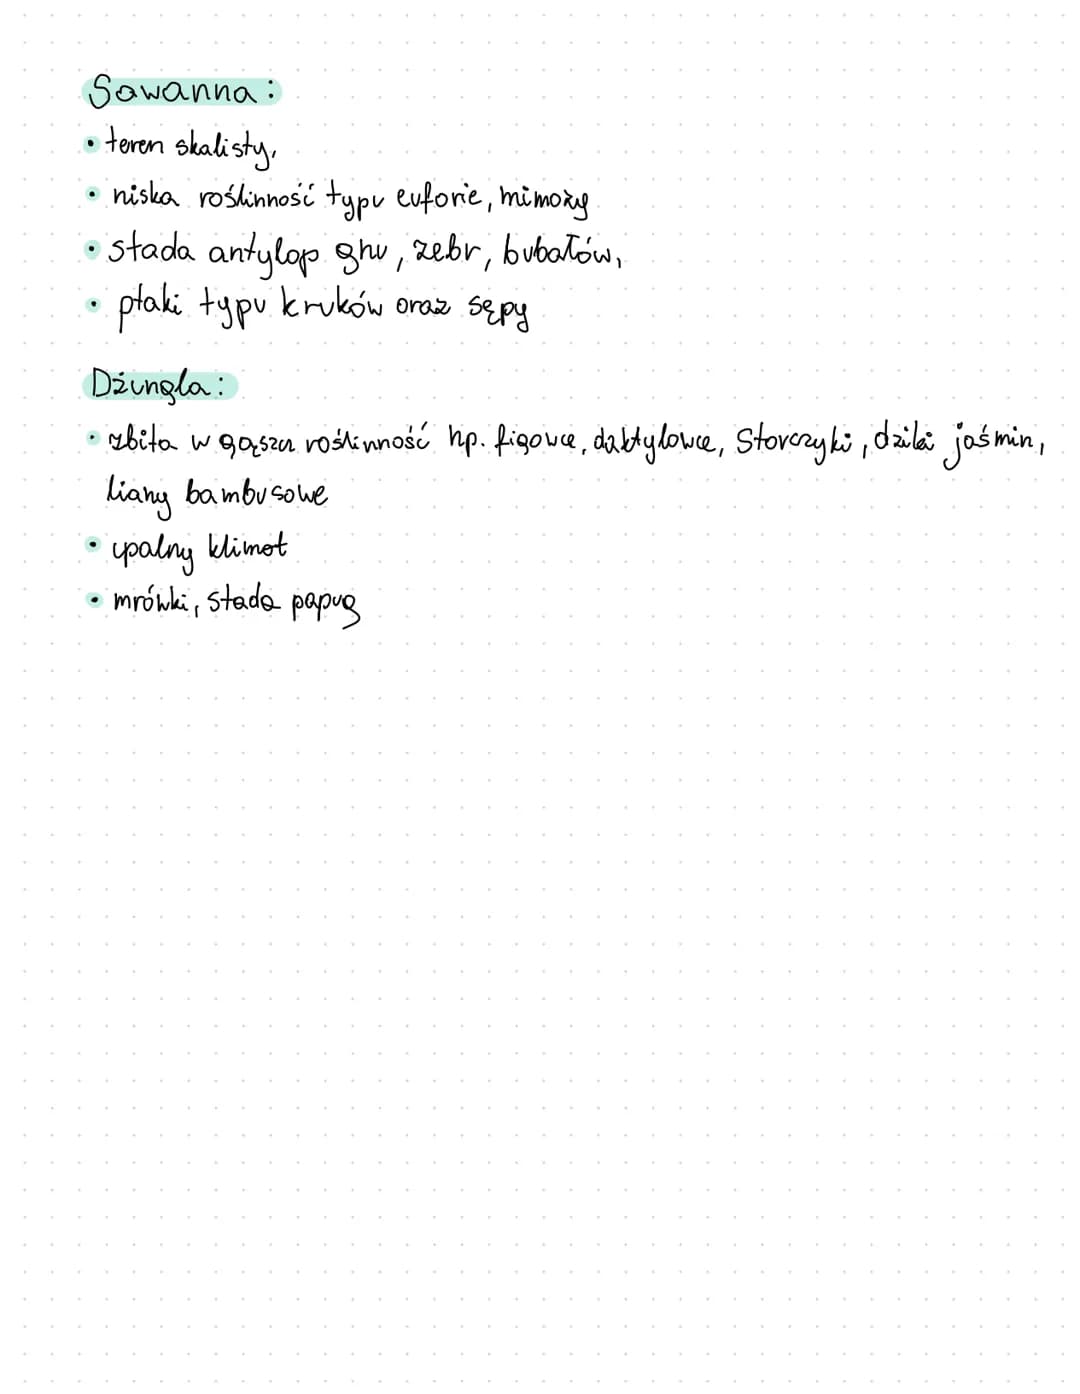 Sawanna:
• teren skalisty,
• niska roślinność typu euforie, mimozy
• stada antylop ghu, zebr, bubałów,
• ptaki typu kruków oraz sępy
Dżungla:
• zbita w gąszcz roślinność np. figowce, daktylowce, Storczyki, dziki jaśmin,
liany bambusowe
• upalny klimat
• mrówki, stada papug